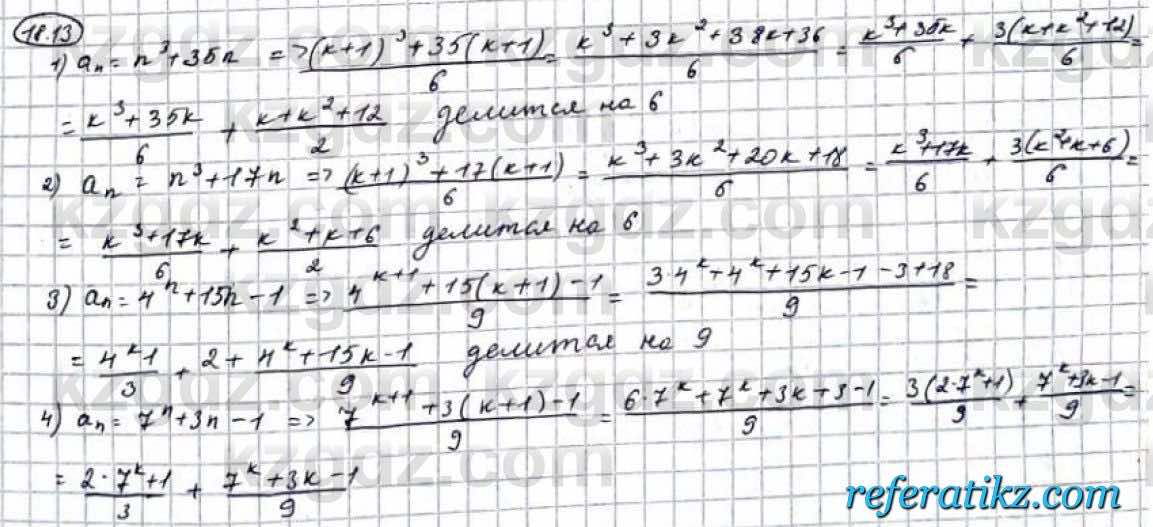 18.13
1) aₙ = n³+35n => ((k+1)³+35(k+1))/6 = (k³+3k²+38k+36)/6 = (k³+35k)/6 + 3(k+k²+12)/6 =
= (k³+35k)/6 + (k+k²+12)/2 делится на 6
2) aₙ = n³+17n => ((k+1)³+17(k+1))/6 = (k³+3k²+20k+18)/6 = (k³+17k)/6 + 3(k²+k+6)/6 =
= (k³+17k)/6 + (k²+k+6)/2 делится на 6
3) aₙ = 4ⁿ+15n-1 => (4ᵏ⁺¹+15(k+1)-1)/9 = (3·4ᵏ+4ᵏ+15k-1-3+18)/9 =
= (4ᵏ-1)/3 + 2 + (4ᵏ+15k-1)/9 делится на 9
4) aₙ = 7ⁿ+3n-1 => (7ᵏ⁺¹+3(k+1)-1)/9 = (6·7ᵏ+7ᵏ+3k+3-1)/9 = 3(2·7ᵏ+1)/9 + (7ᵏ+3k-1)/9 =
= (2·7ᵏ+1)/3 + (7ᵏ+3k-1)/9
kzgdz.com
referatikz.com